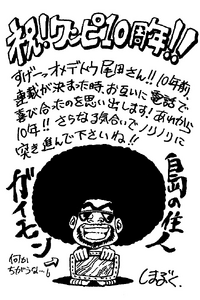 祝!ワンピ10周年!!
すげーッオメデトウ尾田さん!!10年前、
連載が決まった時、お互いに電話で
喜び合ったのを思い出します!あれから
10年!!さらなる気合いでノリノリに
突き進んで下さいね!!
島の住人
ガイモン
何かちがうな〜!
しまぶく